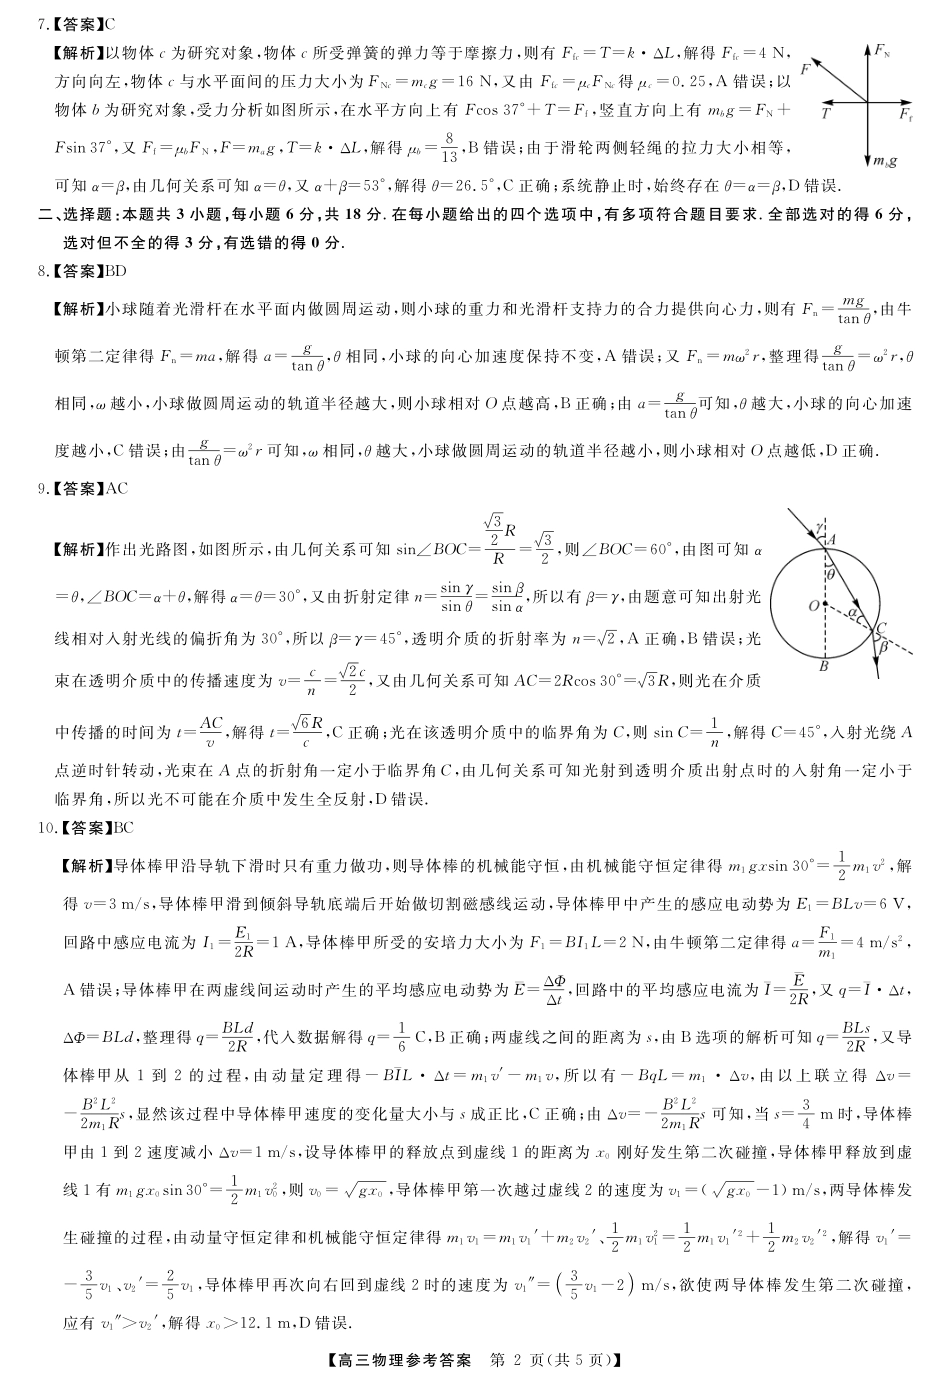 7.【答案】C
【解析】以物体 c 为研究对象,物体 c 所受弹簧的弹力等于摩擦力,则有 Ffc=T=k·ΔL,解得 Ffc=4 N,
方向向左,物体 c 与水平面间的压力大小为 FNc=mcg=16 N,又由 Ffc=μcFNc得 μc=0.25,A 错误;以
物体 b 为研究对象,受力分析如图所示,在水平方向上有 Fcos 37°+T=Ff,竖直方向上有 mbg=FN+
Fsin 37°,又 Ff=μbFN,F=mag,T=k·ΔL,解得 μb=8/13,B 错误;由于滑轮两侧轻绳的拉力大小相等,
可知 α=β,由几何关系可知 α=θ,又 α+β=53°,解得 θ=26.5°,C 正确;系统静止时,始终存在 θ=α=β,D 错误.
FN
F
T
Ff
mbg
二、选择题:本题共 3 小题,每小题 6 分,共 18 分.在每小题给出的四个选项中,有多项符合题目要求.全部选对的得 6 分,
选对但不全的得 3 分,有选错的得 0 分.
8.【答案】BD
【解析】小球随着光滑杆在水平面内做圆周运动,则小球的重力和光滑杆支持力的合力提供向心力,则有 Fn=mg/tan θ,由牛
顿第二定律得 Fn=ma,解得 a=g/tan θ,θ 相同,小球的向心加速度保持不变,A 错误;又 Fn=mω²r,整理得g/tan θ=ω²r,θ
相同,ω 越小,小球做圆周运动的轨道半径越大,则小球相对 O 点越高,B 正确;由 a=g/tan θ可知,θ 越大,小球的向心加速
度越小,C 错误;由g/tan θ=ω²r 可知,ω 相同,θ 越大,小球做圆周运动的轨道半径越小,则小球相对 O 点越低,D 正确.
9.【答案】AC
【解析】作出光路图,如图所示,由几何关系可知 sin∠BOC=(√3/2 R)/R=√3/2,则∠BOC=60°,由图可知 α
=θ,∠BOC=α+θ,解得 α=θ=30°,又由折射定律 n=sin γ/sin θ=sin β/sin α,所以有 β=γ,由题意可知出射光
线相对入射光线的偏折角为 30°,所以 β=γ=45°,透明介质的折射率为 n=√2,A 正确,B 错误;光
束在透明介质中的传播速度为 v=c/n=√2c/2,又由几何关系可知 AC=2Rcos 30°=√3R,则光在介质
中传播的时间为 t=AC/v,解得 t=√6R/c,C 正确;光在该透明介质中的临界角为 C,则 sin C=1/n,解得 C=45°,入射光绕 A
点逆时针转动,光束在 A 点的折射角一定小于临界角 C,由几何关系可知光射到透明介质出射点时的入射角一定小于
临界角,所以光不可能在介质中发生全反射,D 错误.
γ
A
θ
O
α
C
β
B
10.【答案】BC
【解析】导体棒甲沿导轨下滑时只有重力做功,则导体棒的机械能守恒,由机械能守恒定律得 m₁gxsin 30°=1/2 m₁v²,解
得 v=3 m/s,导体棒甲滑到倾斜导轨底端后开始做切割磁感线运动,导体棒甲中产生的感应电动势为 E₁=BLv=6 V,
回路中感应电流为 I₁=E₁/2R=1 A,导体棒甲所受的安培力大小为 F₁=BI₁L=2 N,由牛顿第二定律得 a=F₁/m₁=4 m/s²,
A 错误;导体棒甲在两虚线间运动时产生的平均感应电动势为 E̅=ΔΦ/Δt,回路中的平均感应电流为 I̅=E̅/2R,又 q=I̅·Δt,
ΔΦ=BLd,整理得 q=BLd/2R,代入数据解得 q=1/6 C,B 正确;两虚线之间的距离为 s,由 B 选项的解析可知 q=BLs/2R,又导
体棒甲从 1 到 2 的过程,由动量定理得-BI̅L·Δt=m₁v′-m₁v,所以有-BqL=m₁·Δv,由以上联立得 Δv=
-B²L²/2m₁R s,显然该过程中导体棒甲速度的变化量大小与 s 成正比,C 正确;由 Δv=-B²L²/2m₁R s 可知,当 s=3/4 m 时,导体棒
甲由 1 到 2 速度减小 Δv=1 m/s,设导体棒甲的释放点到虚线 1 的距离为 x₀ 刚好发生第二次碰撞,导体棒甲释放到虚
线 1 有 m₁gx₀sin 30°=1/2 m₁v₀²,则 v₀=√gx₀,导体棒甲第一次越过虚线 2 的速度为 v₁=(√gx₀-1) m/s,两导体棒发
生碰撞的过程,由动量守恒定律和机械能守恒定律得 m₁v₁=m₁v₁′+m₂v₂′、1/2 m₁v₁²=1/2 m₁v₁′²+1/2 m₂v₂′²,解得 v₁′=
-3/5 v₁、v₂′=2/5 v₁,导体棒甲再次向右回到虚线 2 时的速度为 v₁″=(3/5 v₁-2) m/s,欲使两导体棒发生第二次碰撞,
应有 v₁″>v₂′,解得 x₀>12.1 m,D 错误.
【高三物理参考答案 第 2 页(共 5 页)】